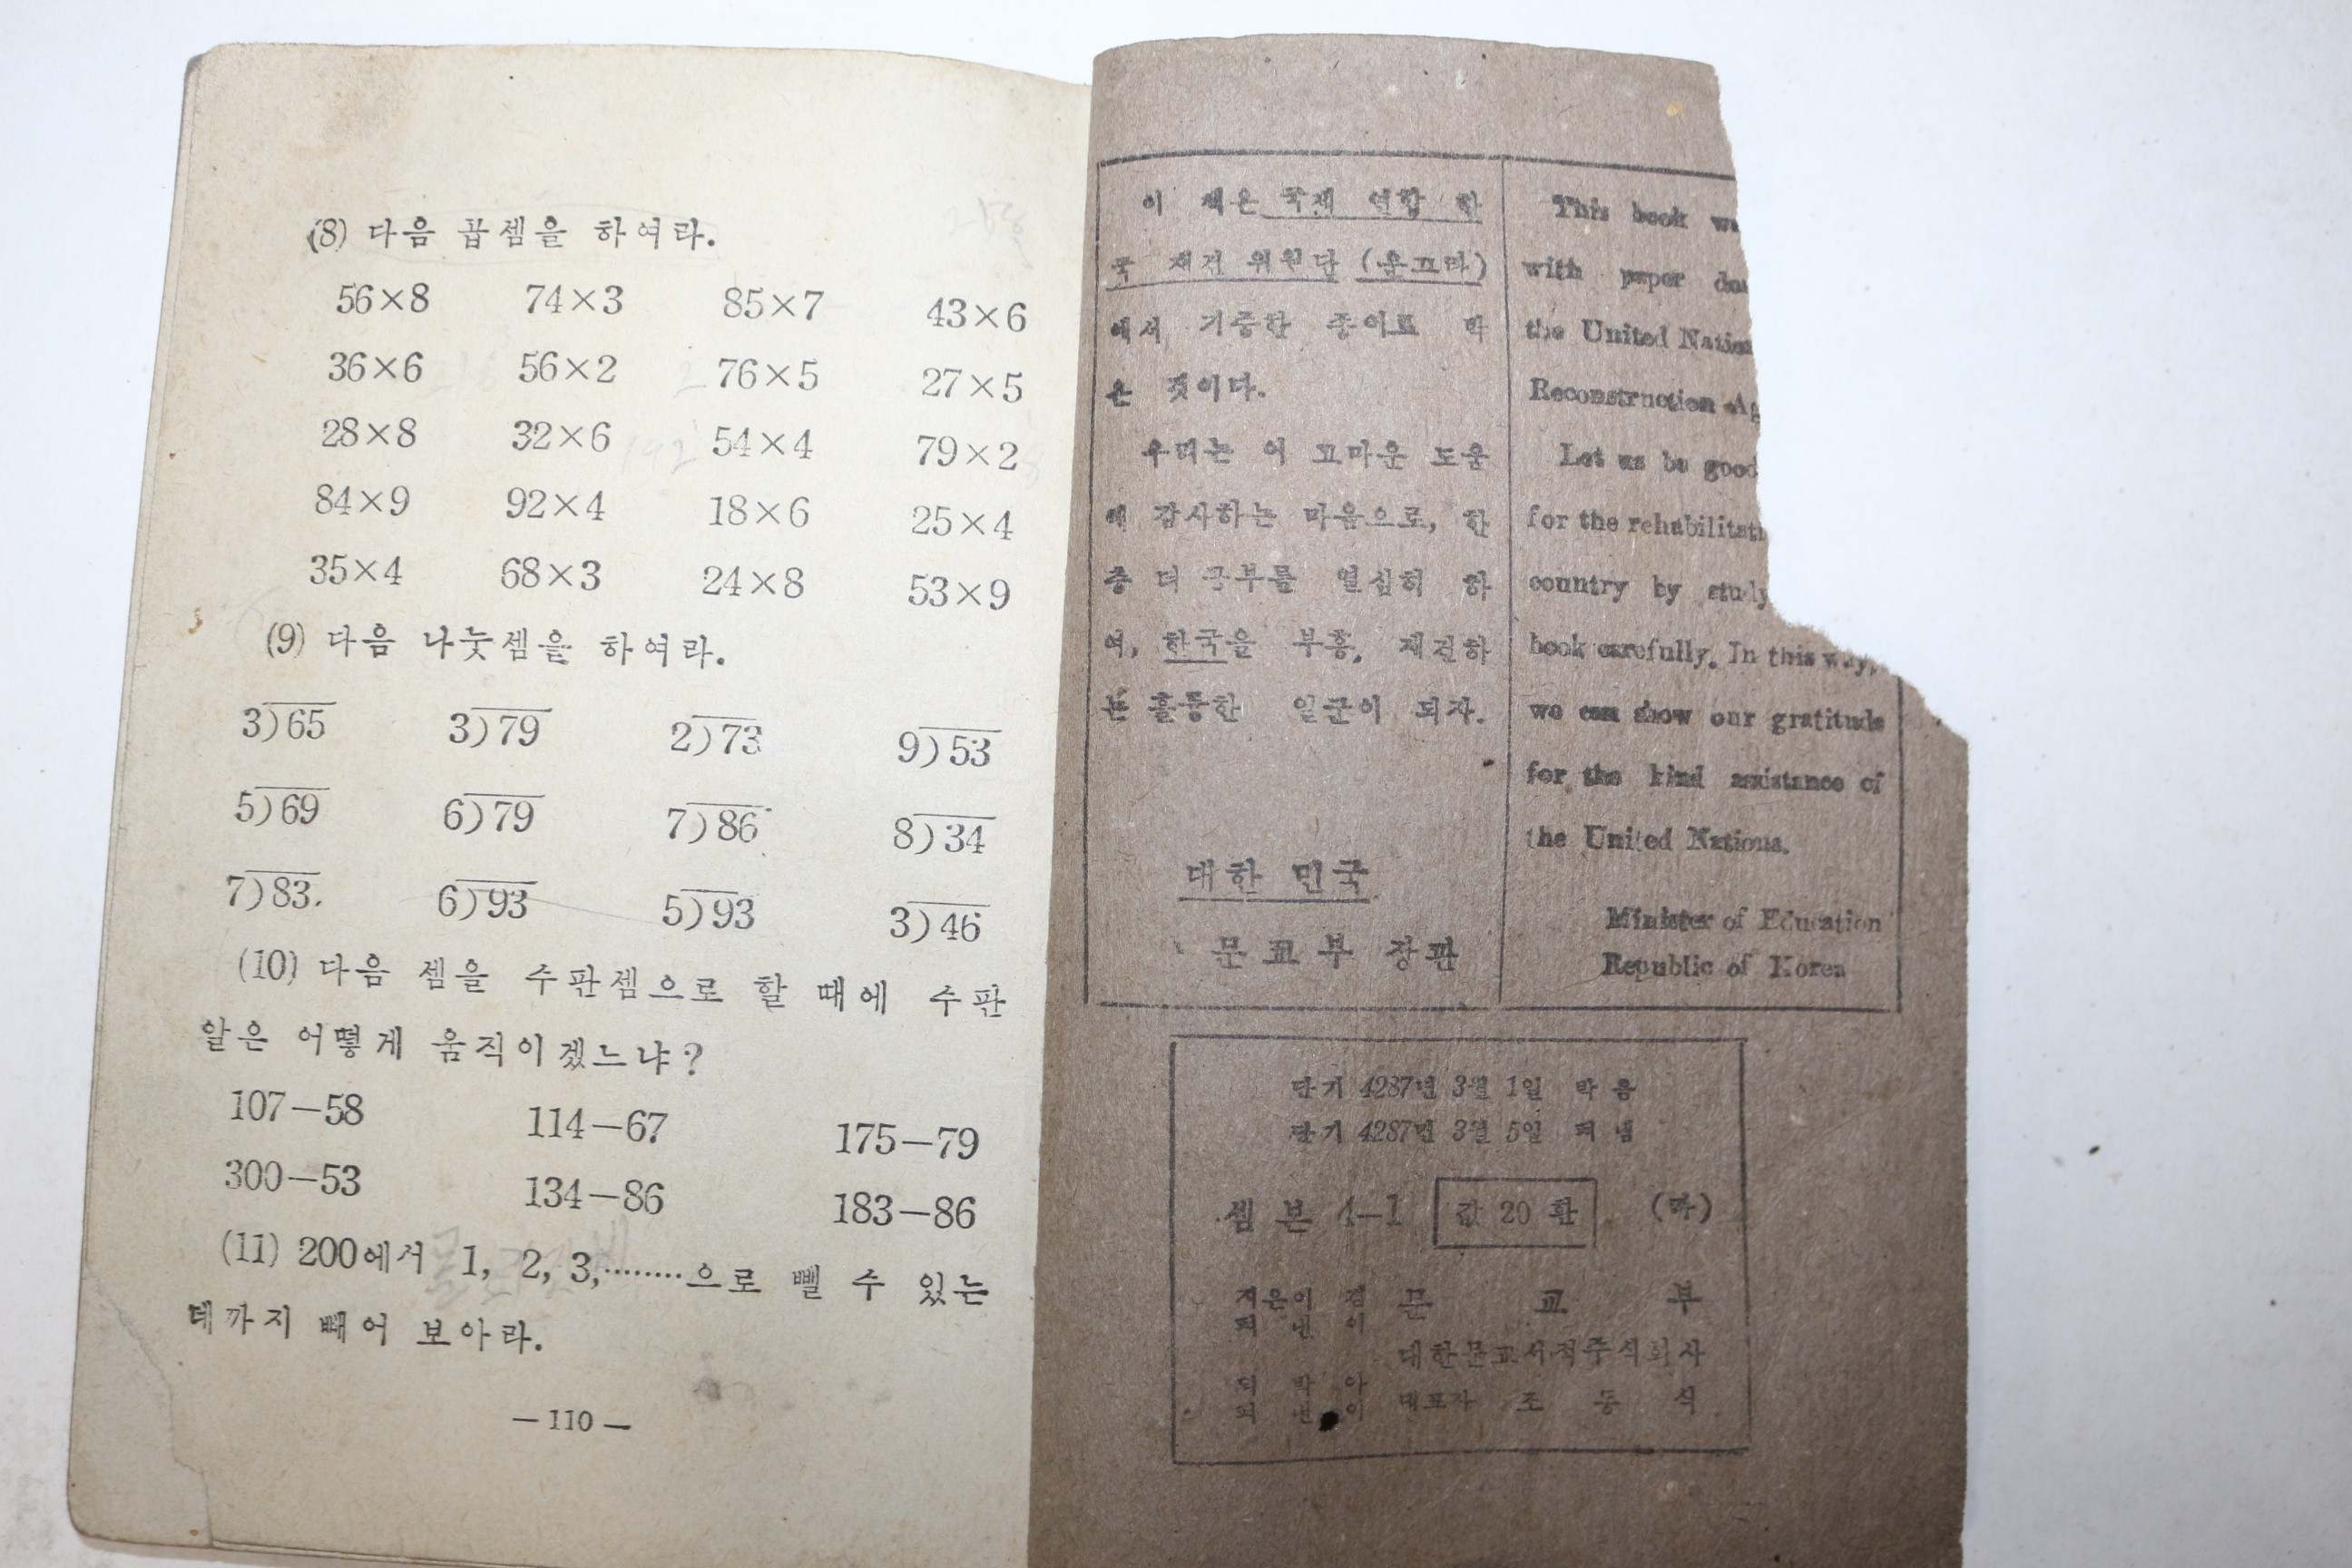 (8) 다음 곱셈을 하여라.
56×8 74×3 85×7 43×6
36×6 56×2 76×5 27×5
28×8 32×6 54×4 79×2
84×9 92×4 18×6 25×4
35×4 68×3 24×8 53×9
(9) 다음 나눗셈을 하여라.
3)65 3)79 2)73 9)53
5)69 6)79 7)86 8)34
7)83. 6)93 5)93 3)46
(10) 다음 셈을 수판셈으로 할 때에 수판
알은 어떻게 움직이겠느냐?
107—58 114—67 175—79
300—53 134—86 183—86
(11) 200에서 1, 2, 3,………으로 뺄 수 있는
데까지 빼어 보아라.
— 110 —
이 책은 국제 연합 한
국 재건 위원단 (운끄라)
에서 기증한 종이로 박
은 것이다.
우리는 이 고마운 도움
에 감사하는 마음으로, 한
층 더 공부를 열심히 하
여, 한국을 부흥, 재건하
는 훌륭한 일군이 되자.
대한 민국
문교부 장관
This book w
with paper
the United Nation
Reconstruction Ag
Let us be good
for the rehabilitati
country by study
book carefully. In this way,
we can show our gratitude
for the kind assistance of
the United Nations.
Minister of Education
Republic of Korea
단기 4287년 3월 1일 박음
단기 4287년 3월 5일 펴냄
셈본 4—1 값 20 환
지은이 겸
펴낸이
문교부
대한문교서적주식회사
박아
펴낸이
대표자 조동식